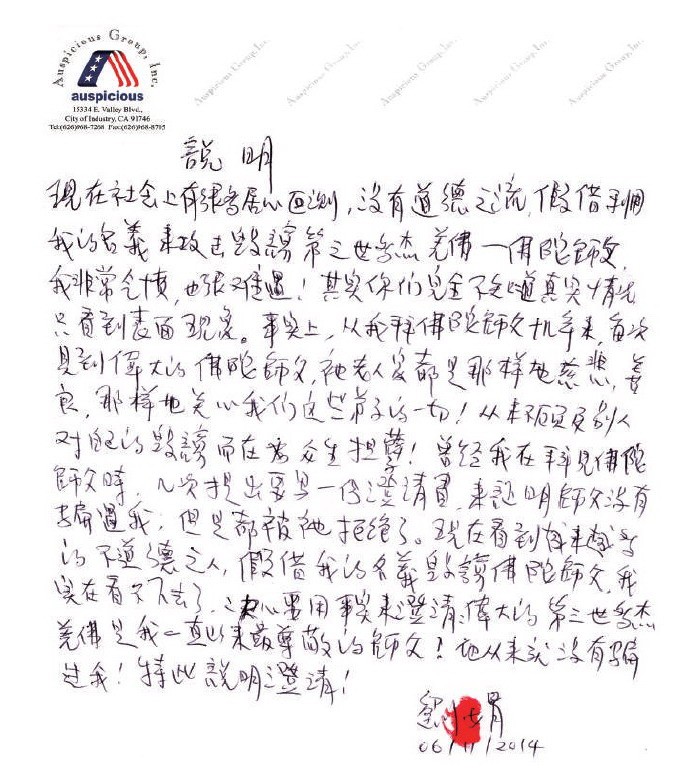 Auspicious Group, Inc.
auspicious
15334 E. Valley Blvd.,
City of Industry, CA 91746
Tel:(626)968-7268 Fax:(626)968-8795
Auspicious Group, Inc. Auspicious Group, Inc. Auspicious Group, Inc. Auspicious Group, Inc. Auspicious Group, Inc.
說明
现在社会上有很多居心叵测,没有道德之流,假借利用
我的名義来攻击毀謗第三世多杰羌佛—佛陀師父,
我非常气憤,也很难過!其实你们完全不知道真实情况
只看到表面现象。事实上,从我拜佛陀師父十几年来,每次
見到偉大的佛陀師父,祂老人家都是那样地慈悲,善
良,那样地关心我们这些弟子的一切!从来不顾及别人
对自己的毀謗而在為众生担孽!曾经我在拜見佛陀
師父時,几次提出要写一份澄清書,来証明師父没有
骗過我,但是都被祂拒绝了。现在看到越来越多
的不道德之人,假借我的名義毀謗佛陀師父,我
实在看不下去了,决心要用事实来澄清:偉大的第三世多杰
羌佛是我一直以来最尊敬的師父!祂从来就没有骗
过我!特此說明澄清!
劉
06/11/2014